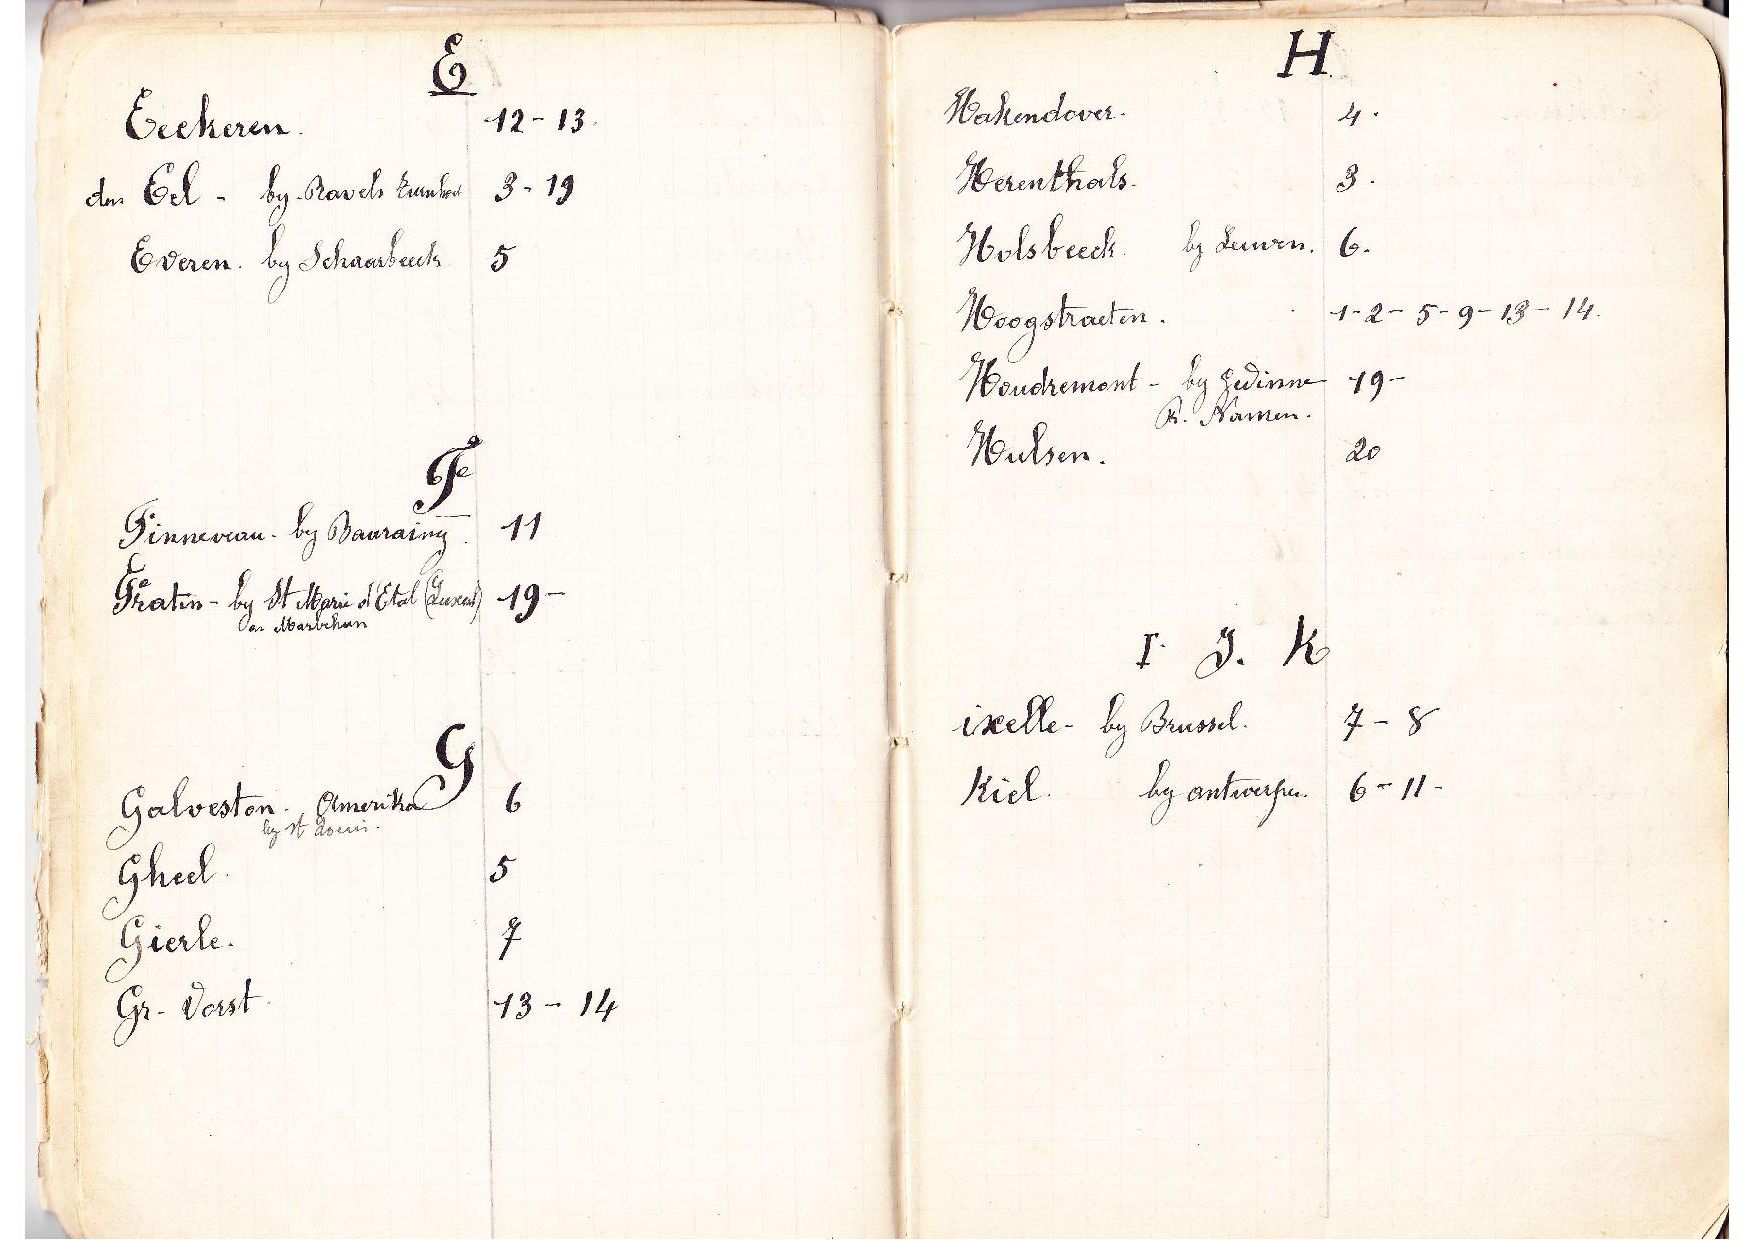 E
Eeckeren. 12 - 13.
den Eel - by Ravels Turnhout 3 - 19
Everen. by Schaarbeeck 5
F
Finneveau - by Baurainy. 11
Fratin - by St Marie d'Etal (Luxem) 19 -
en Marbehan
G
Galveston. Amerika 6
by St Louis.
Gheel. 5
Gierle. 7
Gr - Vorst. 13 - 14
H.
Hakendover. 4.
Herenthals. 3.
Holsbeeck. by Leuven. 6.
Hoogstraeten. 1 - 2 - 5 - 9 - 13 - 14.
Houdremont - by Gedinne 19 -
Pr. Namen.
Hulsen. 20
I. J. K
ixelle - by Brussel. 7 - 8
Kiel. by antwerpen. 6 - 11 -